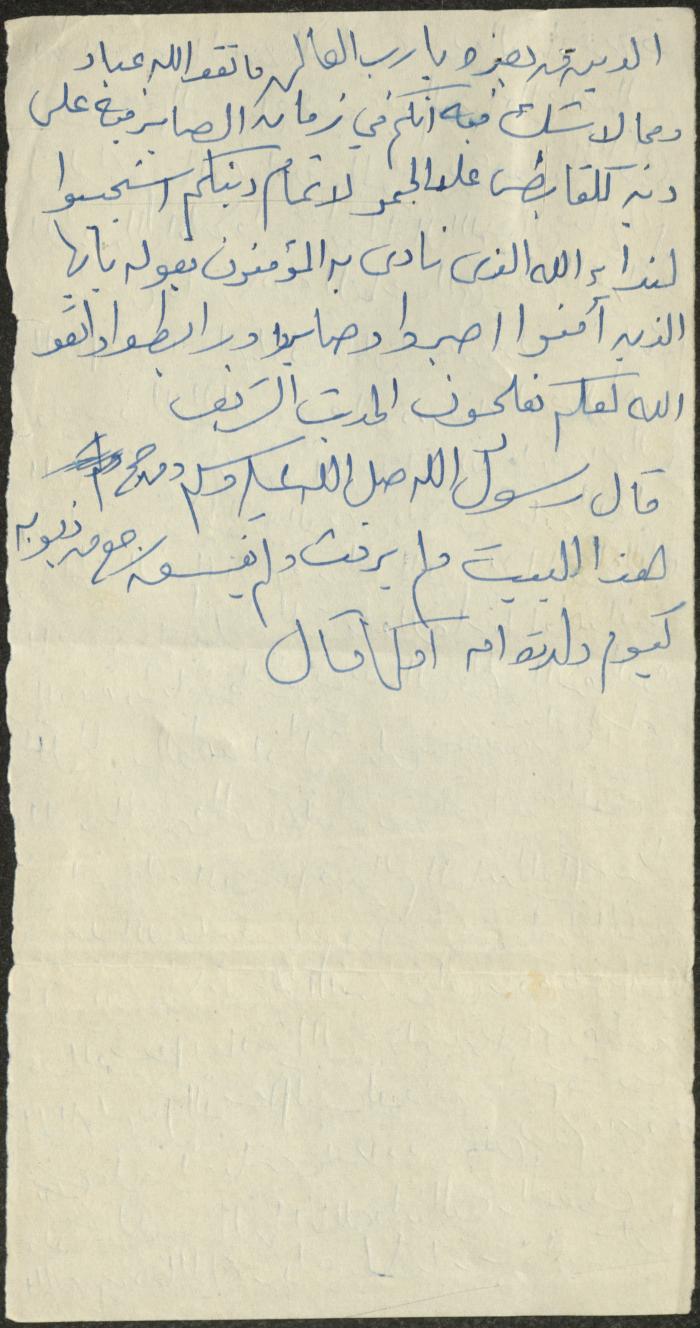 الدين من يعزه يا رب العالمين فاتقوا الله عباد
ومما لا شك فيه انكم في زمان الصابر فيه على
دينه كالقابض على الجمر لاتمام دينكم استجيبوا
لنداء الله الذي نادى به المؤمنون بقوله يأيها
الذين آمنوا اصبروا وصابروا ورابطوا واتقو
الله لعلكم تفلحون الحديث الشريف
قال رسول الله صل الله عليه وسلم من حج
هذا البيت ولم يرفث ولم يفسق رجع من ذنوبه
كيوم ولدته امه أو كما قال